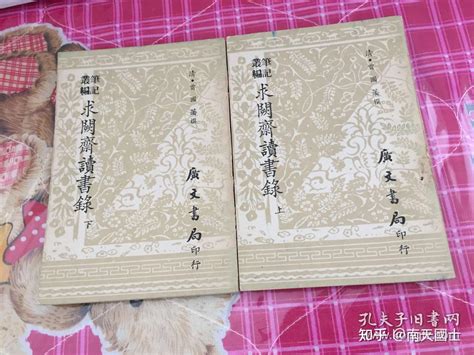 清·曾國藩撰
筆記叢編
求闕齋讀書錄
下
廣文書局印行
清·曾國藩撰
筆記叢編
求闕齋讀書錄
上
廣文書局印行
孔夫子旧书网
知乎 @南天國士